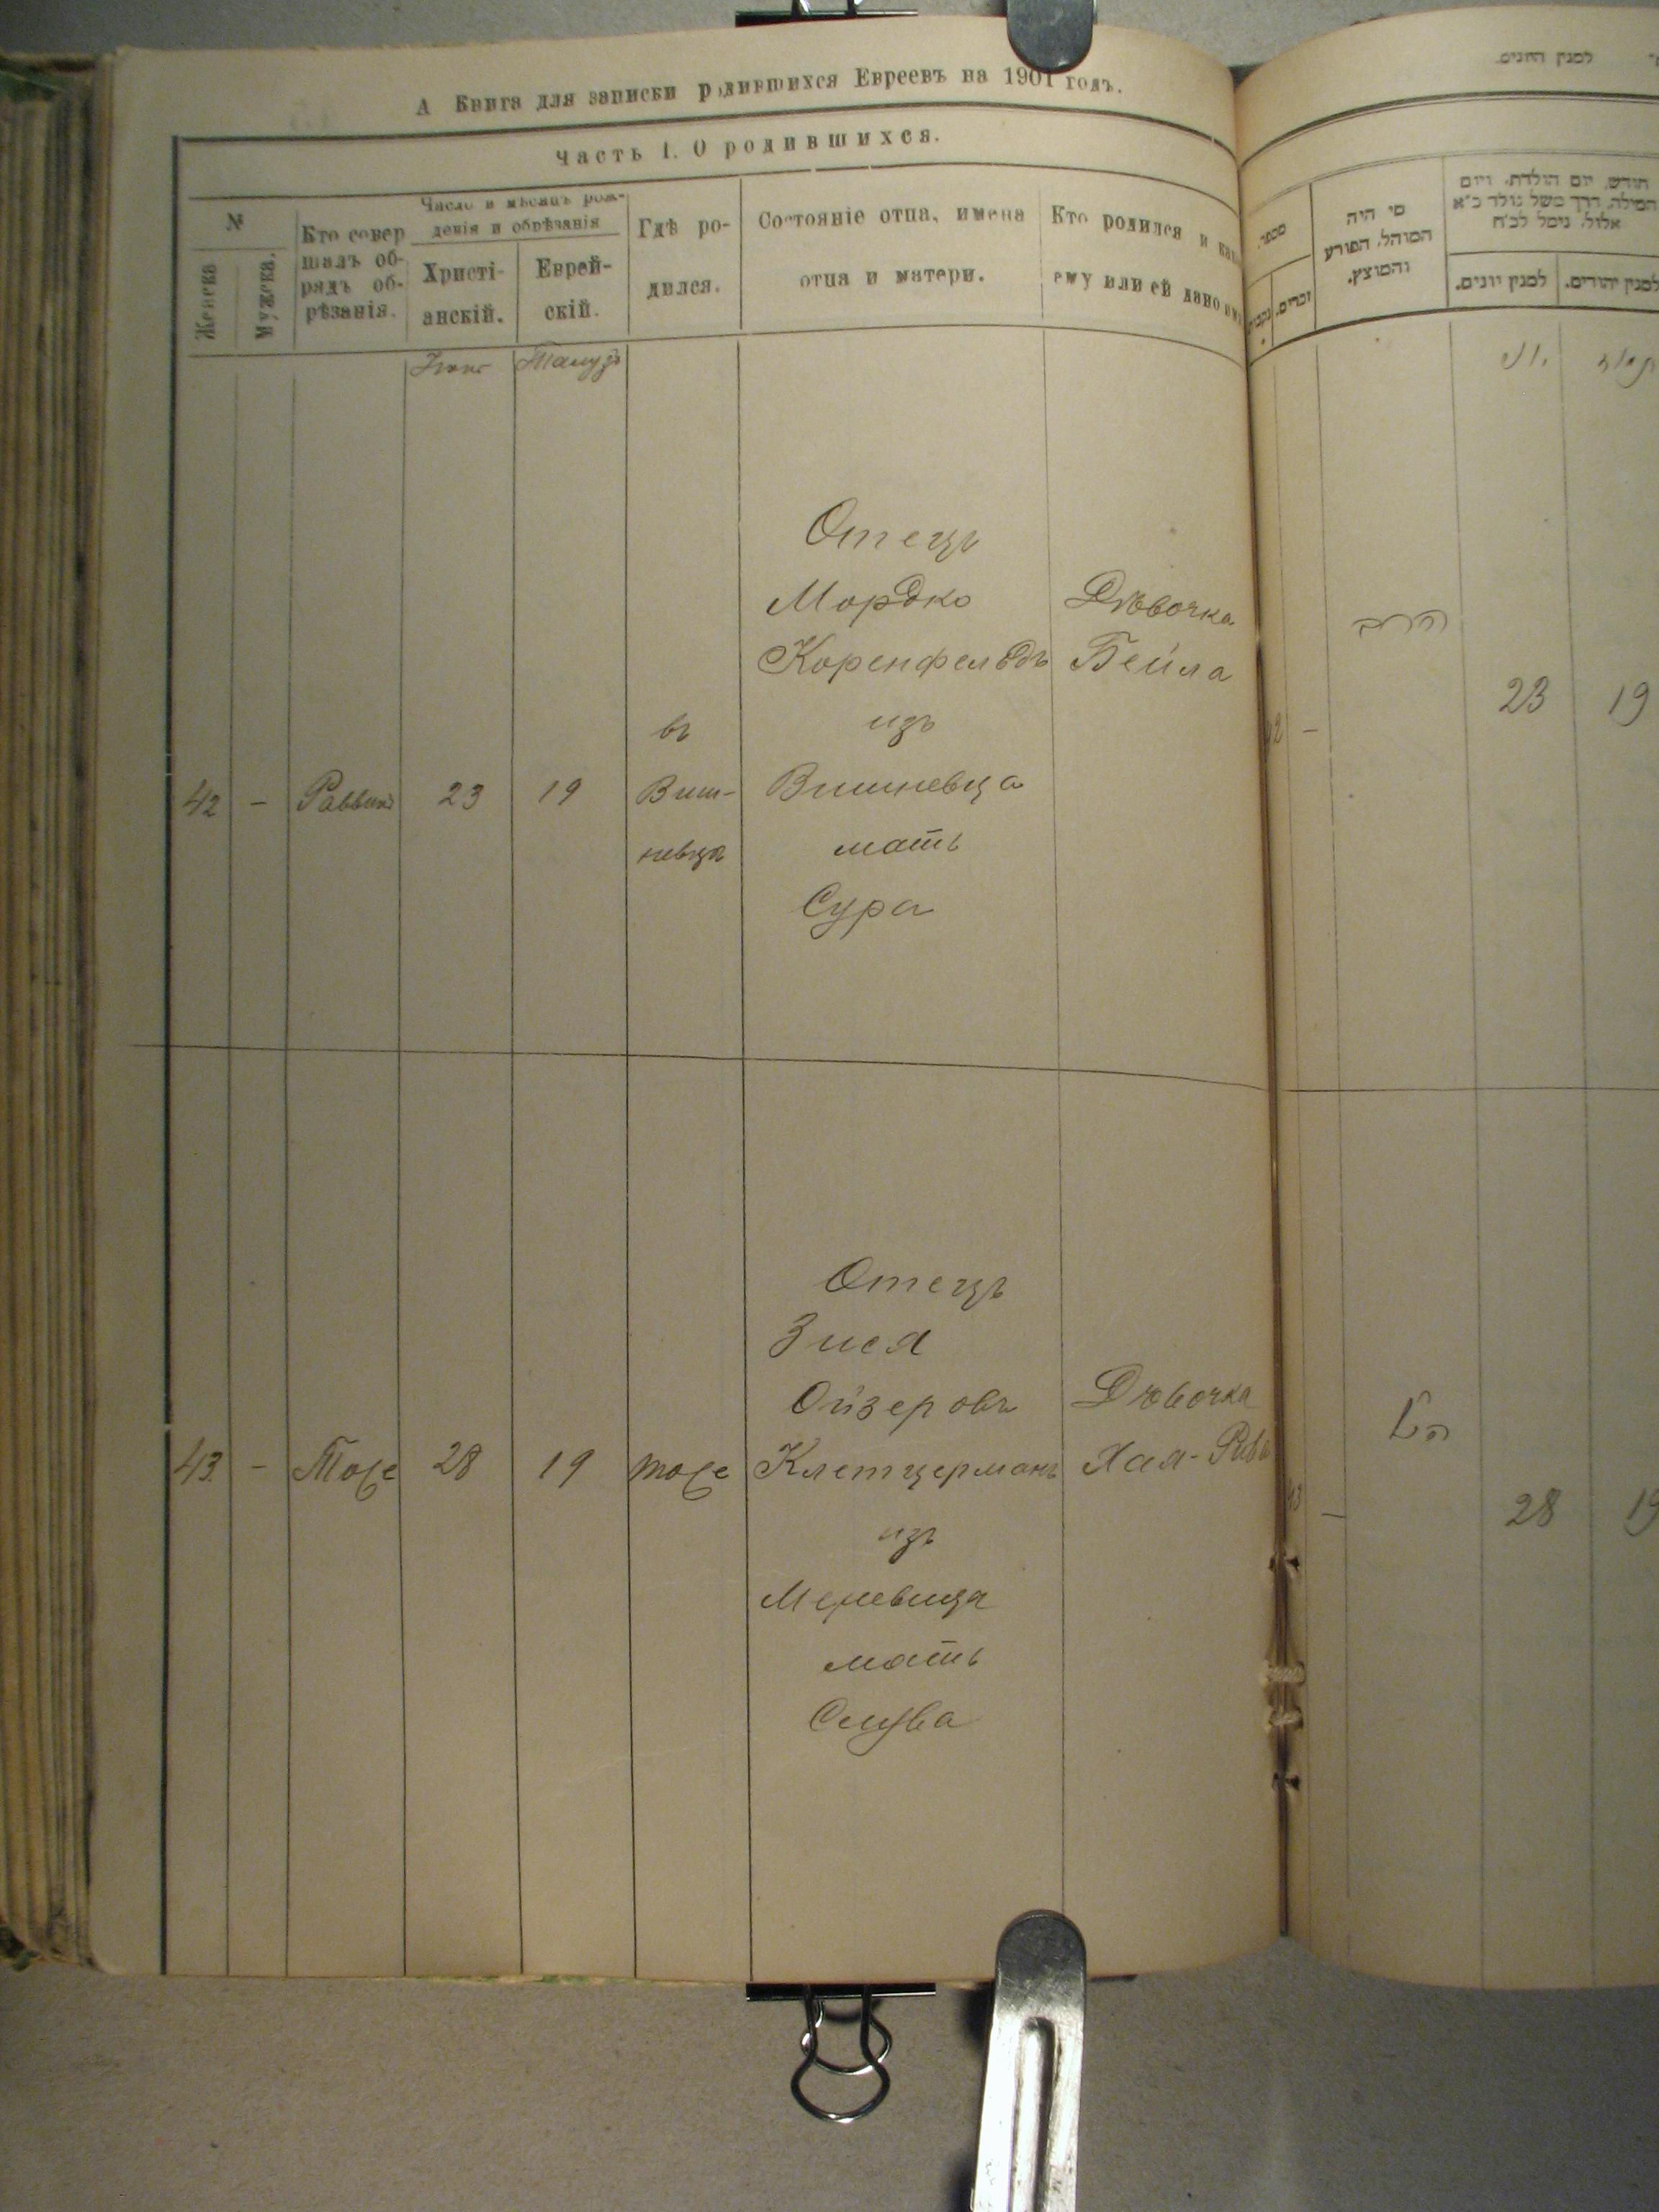 А Книга для записки родившихся Евреевъ на 1901 годъ.
Часть I. О родившихся.
№
Женска
Мужеска.
Кто совер
шалъ об-
рядъ об-
рѣзанія.
Число и мѣсяцъ рож-
денія и обрѣзанія
Христі-
анскій.
Еврей-
скій.
Гдѣ ро-
дился.
Состояніе отца, имена
отца и матери.
Кто родился и
ему или ей дано
Тамузъ
42
-
Раввинъ
23
19
въ
Виш-
невца
Отецъ
Мордко
Коренфельдъ
изъ
Вишневца
мать
Сура
Дѣвочка
Бейла
43
-
Тоже
28
19
тоже
Отецъ
Зися
Ойзеровъ
Клетцерманъ
изъ
мать
Дѣвочка
Хая-
למנין היונים.
מספר
נקבות
זכרים.
מי היה
המוהל, הפורע
והמוצץ.
חודש, יום הולדת, ויום
המילה, דרך משל נולד כ״א
אלול, נימל לכ״ח
למנין יונים.
למנין יהודים.
יוני
תמוז
42
-
הרב
23
19
43
-
הנ״ל
28
19